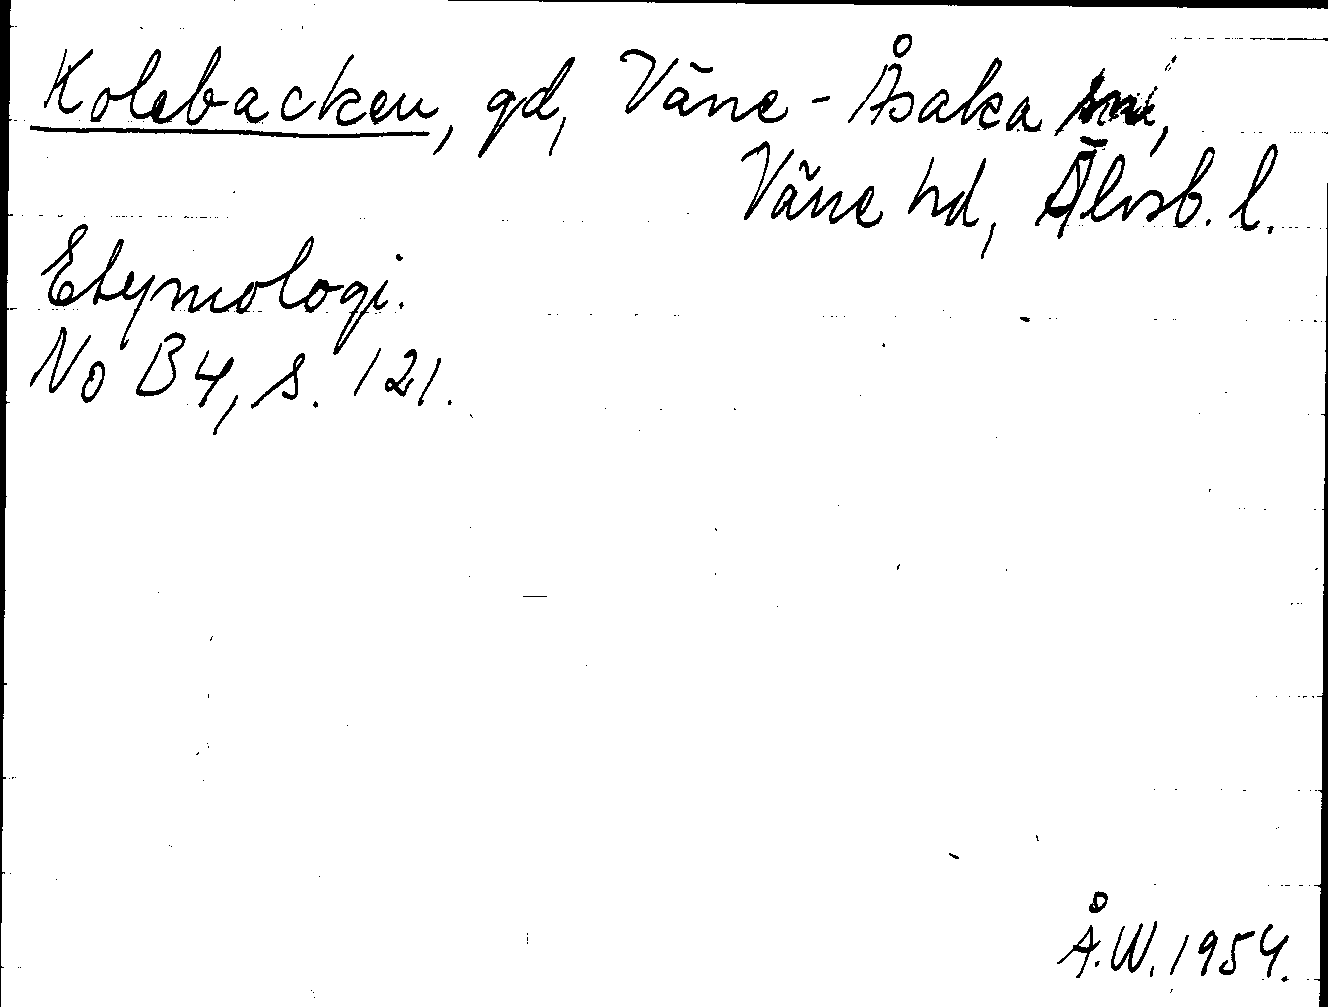 Kolebacken, gd, Väne-Åsaka sn,
Väne hd, Älvsb. l.
Etymologi.
No B 4, s. 121.
Å.W. 1954.